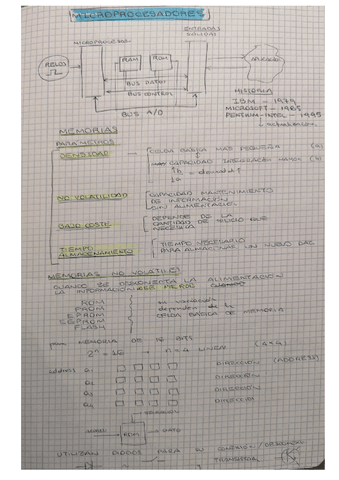 MICROPROCESADORES
MICROPROCESADOR
ENTRADAS
SALIDAS
RELOJ
RAM
ROM
BUS DATOS
BUS CONTROL
BUS A/D
HISTORIA
IBM - 1979
MICROSOFT - 1985
PENTIUM-INTEL - 1995
MEMORIAS
PARAMETROS
DENSIDAD
CELDA BASICA MAS PEQUEÑA
CAPACIDAD INTEGRACION MAYOR
NO VOLATILIDAD
CAPACIDAD MANTENIMIENTO
DE INFORMACION
SIN ALIMENTACION
BAJO COSTE
DEPENDE DE LA
CANTIDAD DE SILICIO QUE
NECESITA
TIEMPO
ALMACENAMIENTO
TIEMPO NECESARIO
PARA ALMACENAR UN NUEVO DATO
MEMORIAS NO VOLATILES
CUANDO SE DESCONECTA LA ALIMENTACION
LA INFORMACION PIERDE
ROM
PROM
EPROM
EEPROM
FLASH
dependen de la
CELDA BASICA DE MEMORIA
para MEMORIA DE 16 BITS
2ⁿ = 16 → n = 4 LINEAS (4x4)
address a₁ DIRECCION (ADDRESS)
a₂ DIRECCION
a₃ DIRECCION
a₄ DIRECCION
ROM
DATO
UTILIZAN DIODOS PARA SU CONEXION/DESCONEXION
TRANSISTOR